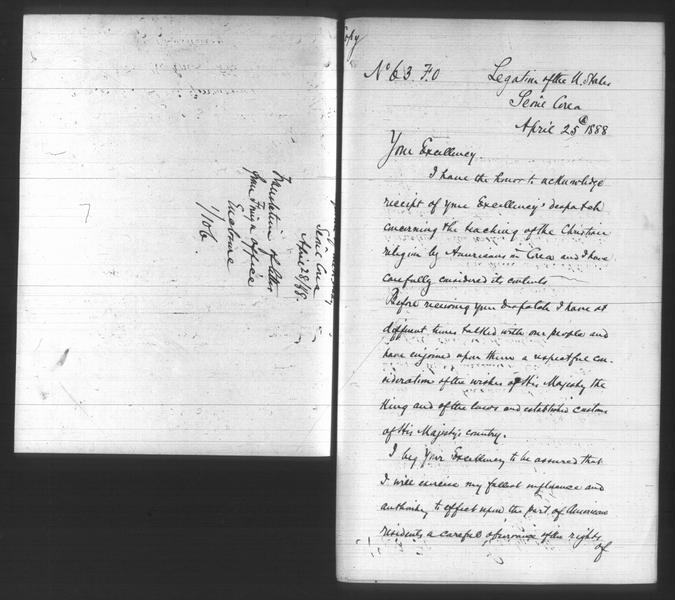 Seoul Corea
April 28/88.
Translation of letter
from Foreign Office
Enclosure
1/106
Copy
No 63 F.O
Legation of the U. States
Seoul Corea
April 25th 1888
Your Excellency
I have the honor to acknowledge
receipt of your Excellency's despatch
concerning the teaching of the Christian
religion by Americans in Corea and I have
carefully considered its contents
Before receiving your despatch I have at
different times talked with our people and
have enjoined upon them a respectful con-
sideration of the wishes of His Majesty the
King and of the laws and established customs
of His Majesty's country.
I beg Your Excellency to be assured that
I will exercise my fullest influence and
authority to effect upon the part of American
residents a careful observance of the rights
of